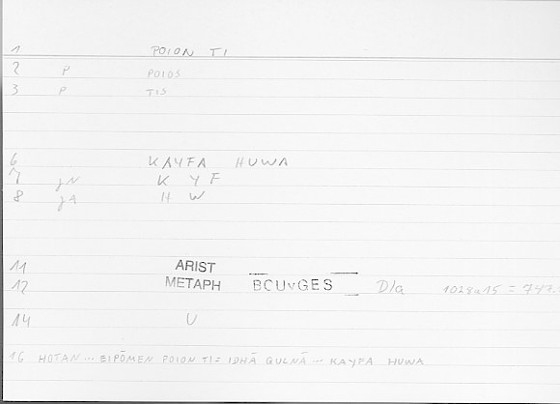 1 POION TI
2 P POIOS
3 P TIS
6 KAYFA HUWA
7 JN K Y F
8 JA H W
11 ARIST
12 METAPH BCUvGES D/a 1028a15 = 747.
14 U
16 HOTAN ... EIPŌMEN POION TI = IDHĀ QULNĀ ... KAYFA HUWA